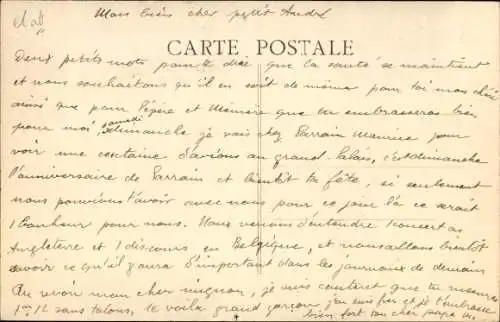 Mon bien cher petit André
CARTE POSTALE
Deux petits mots pour te dire que la santé se maintient
et nous souhaitons qu'il en soit de même pour toi mon chéri
ainsi que pour Pépère et Mémère que tu embrasseras bien
pour moi, samedi dimanche je vais chez Parrain Maurice pour
voir une centaine d'avions au grand Palais, c'est dimanche
l'anniversaire de Parrain et bientôt ta fête, si seulement
nous pouvions t'avoir avec nous pour ce jour là ce serait
1 bonheur pour nous. Nous venons d'entendre 1 concert as
Angleterre et 1 discours en Belgique, et nous allons bientôt
savoir ce qu'il y aura d'important dans les journaux de demain
Au revoir mon cher mignon, je suis content que tu mesures
1m 12 sans talons, te voilà grand garçon j'en suis fier et je t'embrasse
bien fort ton cher papa